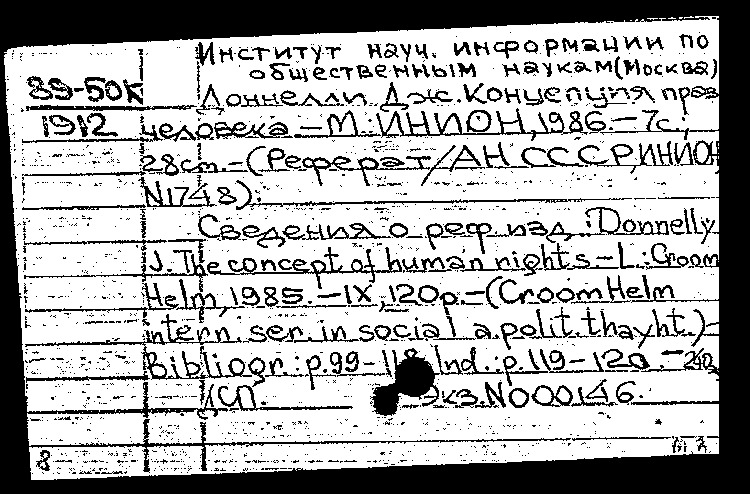 Институт науч. информации по
общественным наукам (Москва)
89-50к
Доннелли Дж. Концепция прав
1912
человека. – М.: ИНИОН, 1986. – 7с.;
28см. – (Реферат/АН СССР, ИНИОН,
N1748).
Сведения о реф. изд.: Donnelly
J. The concept of human rights. – L.: Croom
Helm, 1985. – IX, 120p. – (Croom Helm
intern. ser. in social a. polit. thayht.) –
Bibliogr.: p.99–118. Ind.: p.119–120. –
ДСП. Экз. N000146.
8